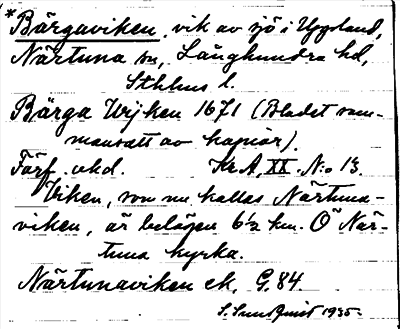 * Bärgaviken, vik av sjö i Uppland,
Närtuna sn, Långhundra hd,
Sthlms l.
Bärga Wijken 1671 (Bladet sam-
mansatt av kopior).
Förf. okd. KrA, XX. N:o 13.
Viken, som nu kallas Närtuna-
viken, är belägen 6½ km. Ö När-
tuna kyrka.
Närtunaviken ek, G. 84.
S. Sundquist 1935.